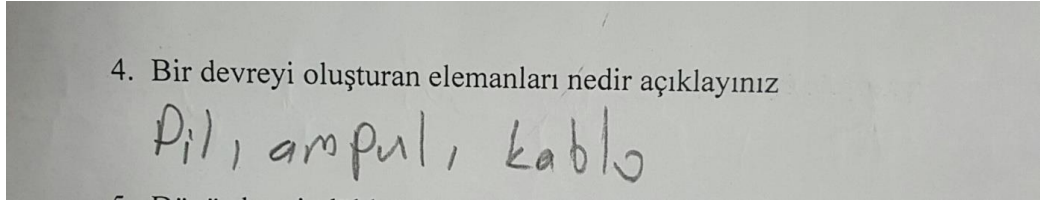 4. Bir devreyi oluşturan elemanları nedir açıklayınız
Pil, ampul, kablo